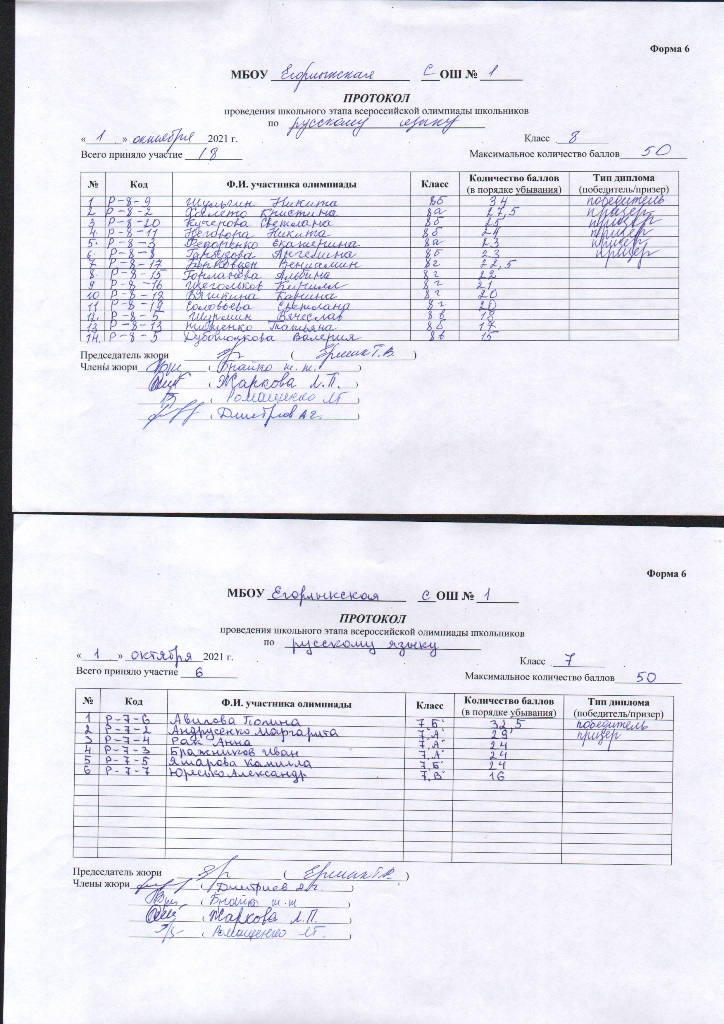 Форма 6
МБОУ Егорлыкская СОШ № 1
ПРОТОКОЛ
проведения школьного этапа всероссийской олимпиады школьников
по русскому языку
« 1 » октября 2021 г. Класс 8
Всего приняло участие 18 Максимальное количество баллов 50
№ Код Ф.И. участника олимпиады Класс Количество баллов (в порядке убывания) Тип диплома (победитель/призер)
1 Р-8-9 Шульгин Никита 8б 34 победитель
2 Р-8-2 Кристина 8а 27,5 призер
3 Р-8-20 Светлана 8б 25 призер
4. Р-8-11 Неговора Никита 8б 24 призер
5. Р-8-3 Федоренко Екатерина 8а 23 призер
6. Р-8-8 Ангелина 8б 23 призер
7 Р-8-17 Вениамин 8г 22,5
8 Р-8-15 Альбина 8г 22
9 Р-8-16 Щегольков Кирилл 8г 21
10 Р-8-18 Карина 8г 20
11 Р-8-19 Соловьева Светлана 8г 20
12. Р-8-5 Вячеслав 8в 18
13 Р-8-13 Татьяна 17
14. Р-8-5 Валерия 8в 15
Председатель жюри ( Ермак Т.В. )
Члены жюри
( Жаркова Л.П. )
( Ромащенко )
( Дмитриев )
Форма 6
МБОУ Егорлыкская СОШ № 1
ПРОТОКОЛ
проведения школьного этапа всероссийской олимпиады школьников
по русскому языку
« 1 » октября 2021 г. Класс 7
Всего приняло участие 6 Максимальное количество баллов 50
№ Код Ф.И. участника олимпиады Класс Количество баллов (в порядке убывания) Тип диплома (победитель/призер)
1 Р-7-6 Авилова Полина 7"Б" 32,5 победитель
2 Р-7-2 Андрусенко Маргарита 7"А" 29 призер
3 Р-7-4 Рак Анна 7"А" 24
4 Р-7-3 Бражников Иван 7"А" 24
5 Р-7-5 Яшарова Камилла 7"Б" 24
6 Р-7-7 Юресько Александр 7"В" 16
Председатель жюри ( Ермак Т.В. )
Члены жюри ( Дмитриев )
( Жаркова Л.П. )
( Ромащенко )